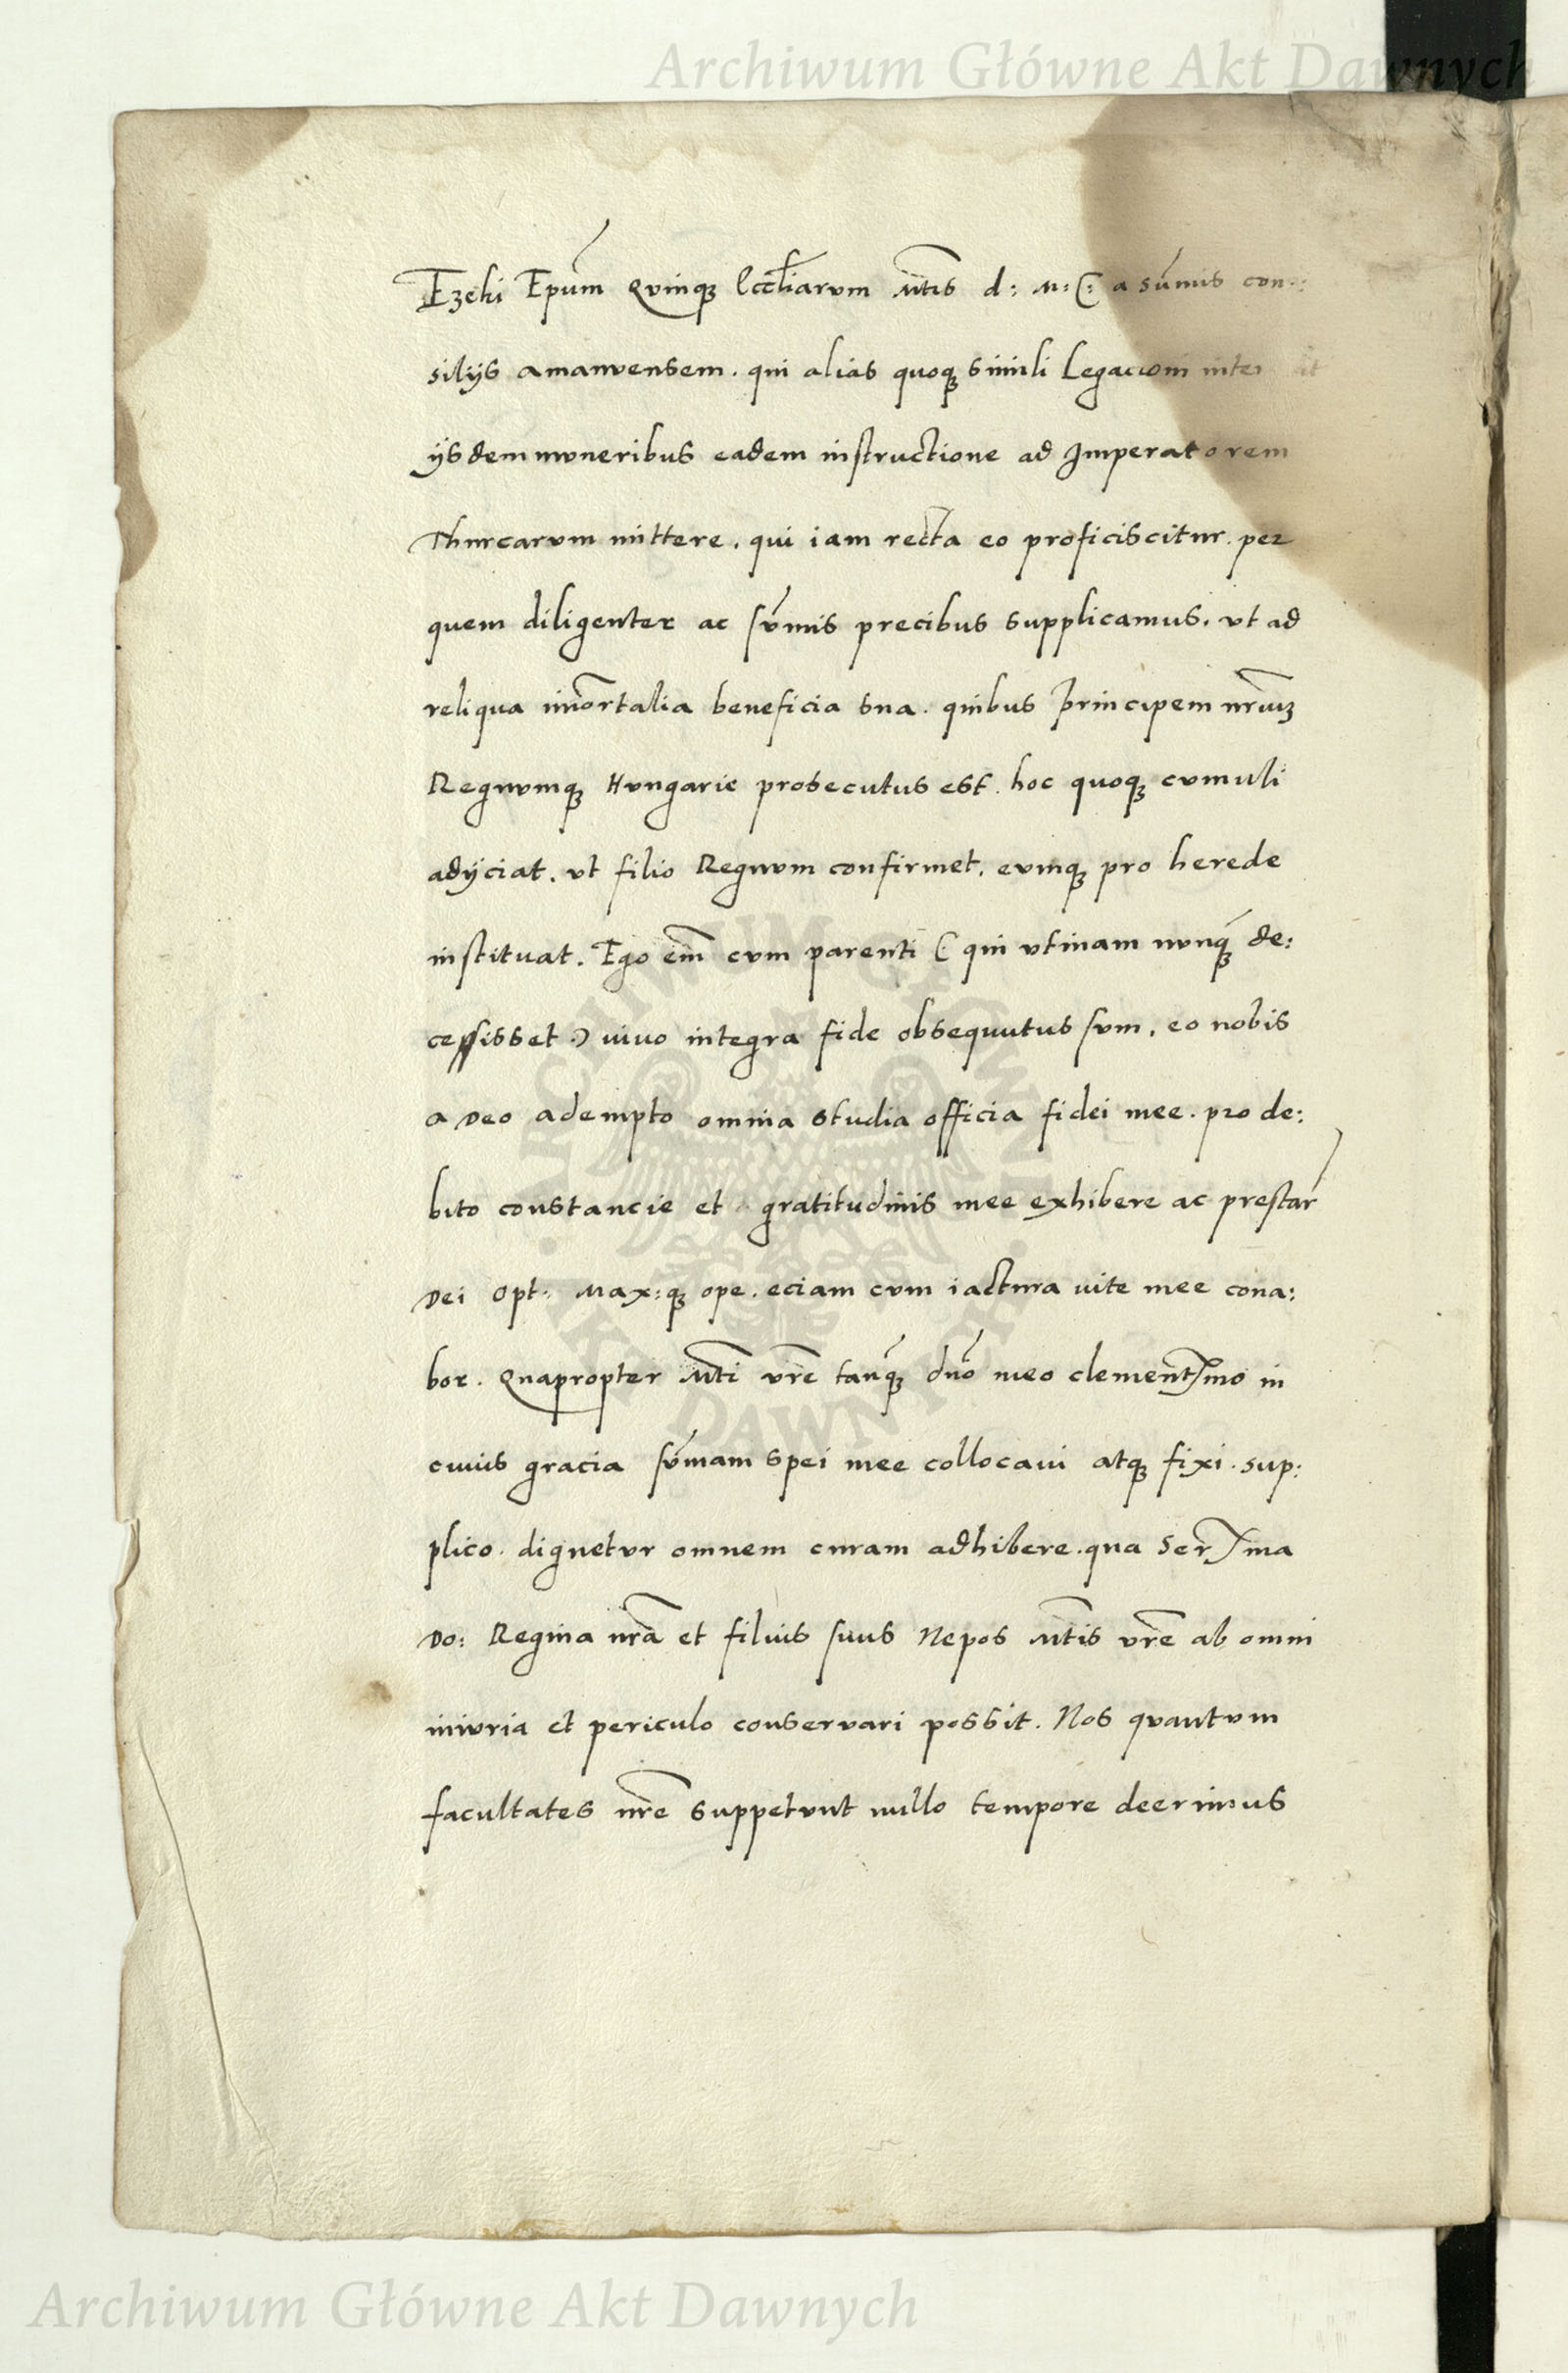 Archiwum Główne Akt Dawnych
Ezeki Ep̄um Qvinqȝ Eccl̄iarvm Mt̄is d: n: (: a sūmis con:
silijs amanvensem. qui alias quoqȝ simili Legacioni
ijsdem mvneribus eadem instructione ad Imperatorem
Thurcarvm mittere. qui iam recta eo proficiscitur. per
quem diligenter ac sv̄mis precibus supplicamus. vt ad
reliqua im̄ortalia beneficia sua. quibus principem nr̄um
Regnvmqȝ Hvngarie prosecutus est. hoc quoqȝ cvmuli
adijciat. vt filio Regnvm confirmet. evmqȝ pro herede
instituat. Ego em̄ cvm parenti (: qui vtinam nvnq̄ȝ de:
cessisset :) uiuo integra fide obsequutus svm. eo nobis
a Deo adempto omnia studia officia fidei mee. pro de:
bito constancie et gratitudinis mee exhibere ac prestar
Dei Opt: Max:qȝ ope. eciam cvm iactura uite mee cona:
bor. Quapropter Mt̄i vr̄e tanq̄ȝ dn̄o meo clement̄mo in
cuius gracia sv̄mam spei mee collocaui atqȝ fixi. sup:
plico. dignetvr omnem curam adhibere. qua Ser̄ma
Do: Regina nr̄a et filius suus Nepos Mt̄is vr̄e ab omni
inivria et periculo conservari possit. Nos qvantvm
facultates nr̄e suppetvnt nullo tempore deerimus
Archiwum Główne Akt Dawnych